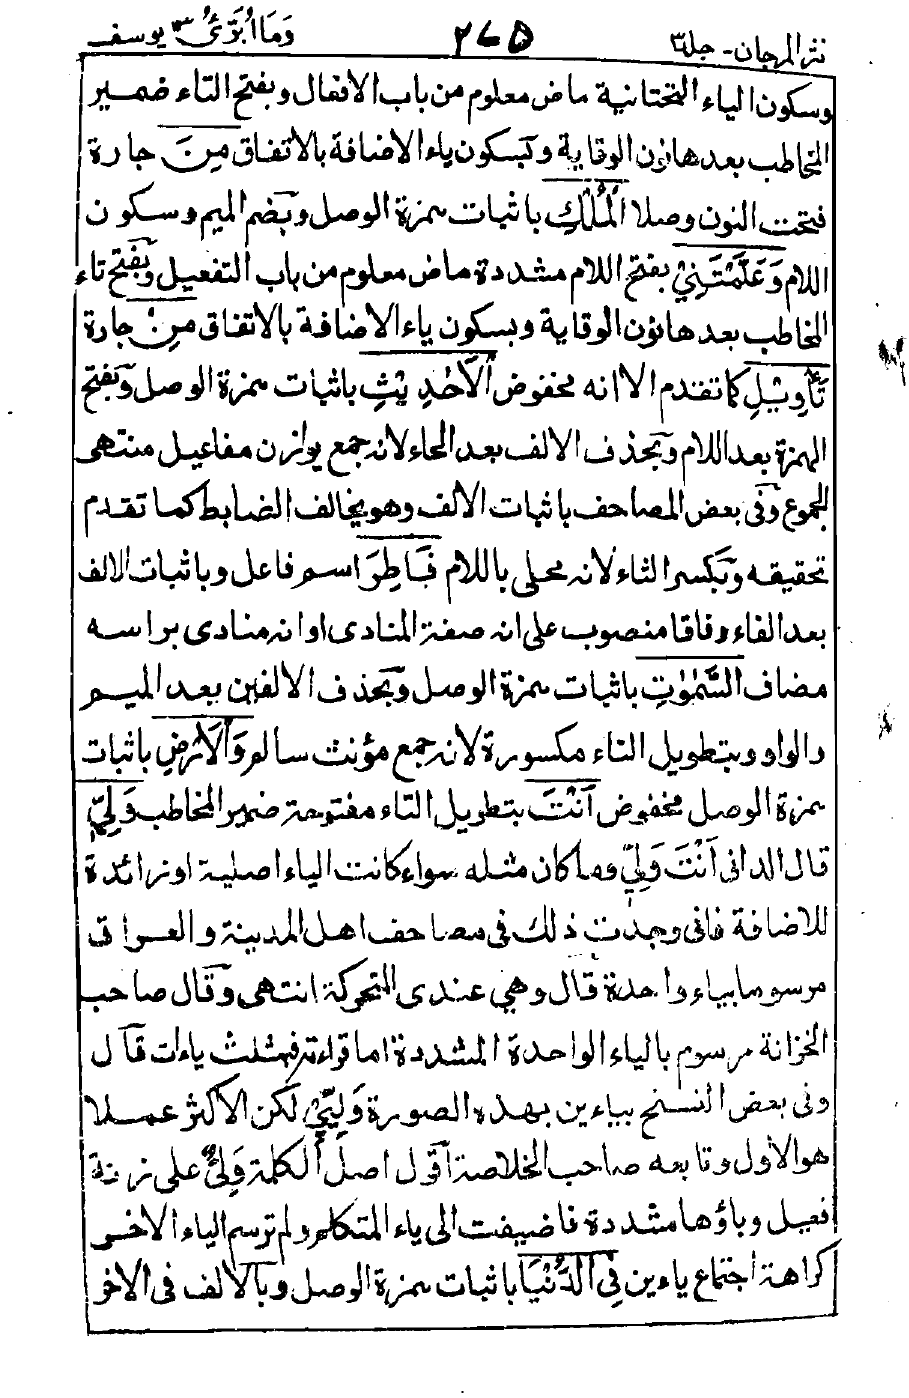 نثر المرجان - جلد ٣ ٢٦٥ وَمَا أُبَرِّئُ ١٣ يوسف
وسكون الياء التحتانية ماض معلوم من باب الافعال وبفتح التاء ضمير
المخاطب بعدها نون الوقاية وبسكون ياء الاضافة بالاتفاق مِنَ جارة
فتحت النون وصلا الْمُلْكِ باثبات همزة الوصل وبضم الميم وسكون
اللام وَعَلَّمْتَنِيْ بفتح اللام مشددة ماض معلوم من باب التفعيل وبفتح تاء
المخاطب بعدها نون الوقاية وبسكون ياء الاضافة بالاتفاق مِنْ جارة
تَأْوِيْلِ كما تقدم الا انه مخفوض الْاَحٰدِيْثِ باثبات همزة الوصل وبفتح
الهمزة بعد اللام وبحذف الالف بعد الحاء لانه جمع يوازن مفاعيل منتهى
الجموع وفى بعض المصاحف باثبات الالف وهو يخالف الضابط كما تقدم
تحقيقه وبكسر الثاء لانه محلى باللام فَاطِرَ اسم فاعل وباثبات الالف
بعد الفاء وفاقا منصوب على انه صفة المنادى او انه منادى براسه
مضاف السَّمٰوٰتِ باثبات همزة الوصل وبحذف الالفين بعد الميم
والواو وبتطويل التاء مكسورة لانه جمع مؤنث سالم وَالْاَرْضِ باثبات
همزة الوصل مخفوض اَنْتَ بتطويل التاء مفتوحة ضمير المخاطب وَلِيّٖ
قال الدانى اَنْتَ وَلِيّٖ وما كان مثله سواء كانت الياء اصلية او زائدة
للاضافة فانى وجدت ذلك فى مصاحف اهل المدينة والعراق
مرسوما بياء واحدة قال وهي عندى المتحركة انتهى وقال صاحب
الخزانة مرسوم بالياء الواحدة المشددة اما قراءته فبثلث ياءات قال
وفى بعض النسخ بياءين بهذه الصورة وَلِيِّيْ لكن الاكثر عملا
هو الاول وتابعه صاحب الخلاصة اقول اصل الكلمة وَلِيٌّ على زنة
فعيل وياؤها مشددة فاضيفت الى ياء المتكلم ولم ترسم الياء الاخرى
كراهة اجتماع ياءين فِي الدُّنْيَا باثبات همزة الوصل وبالالف فى الاخر